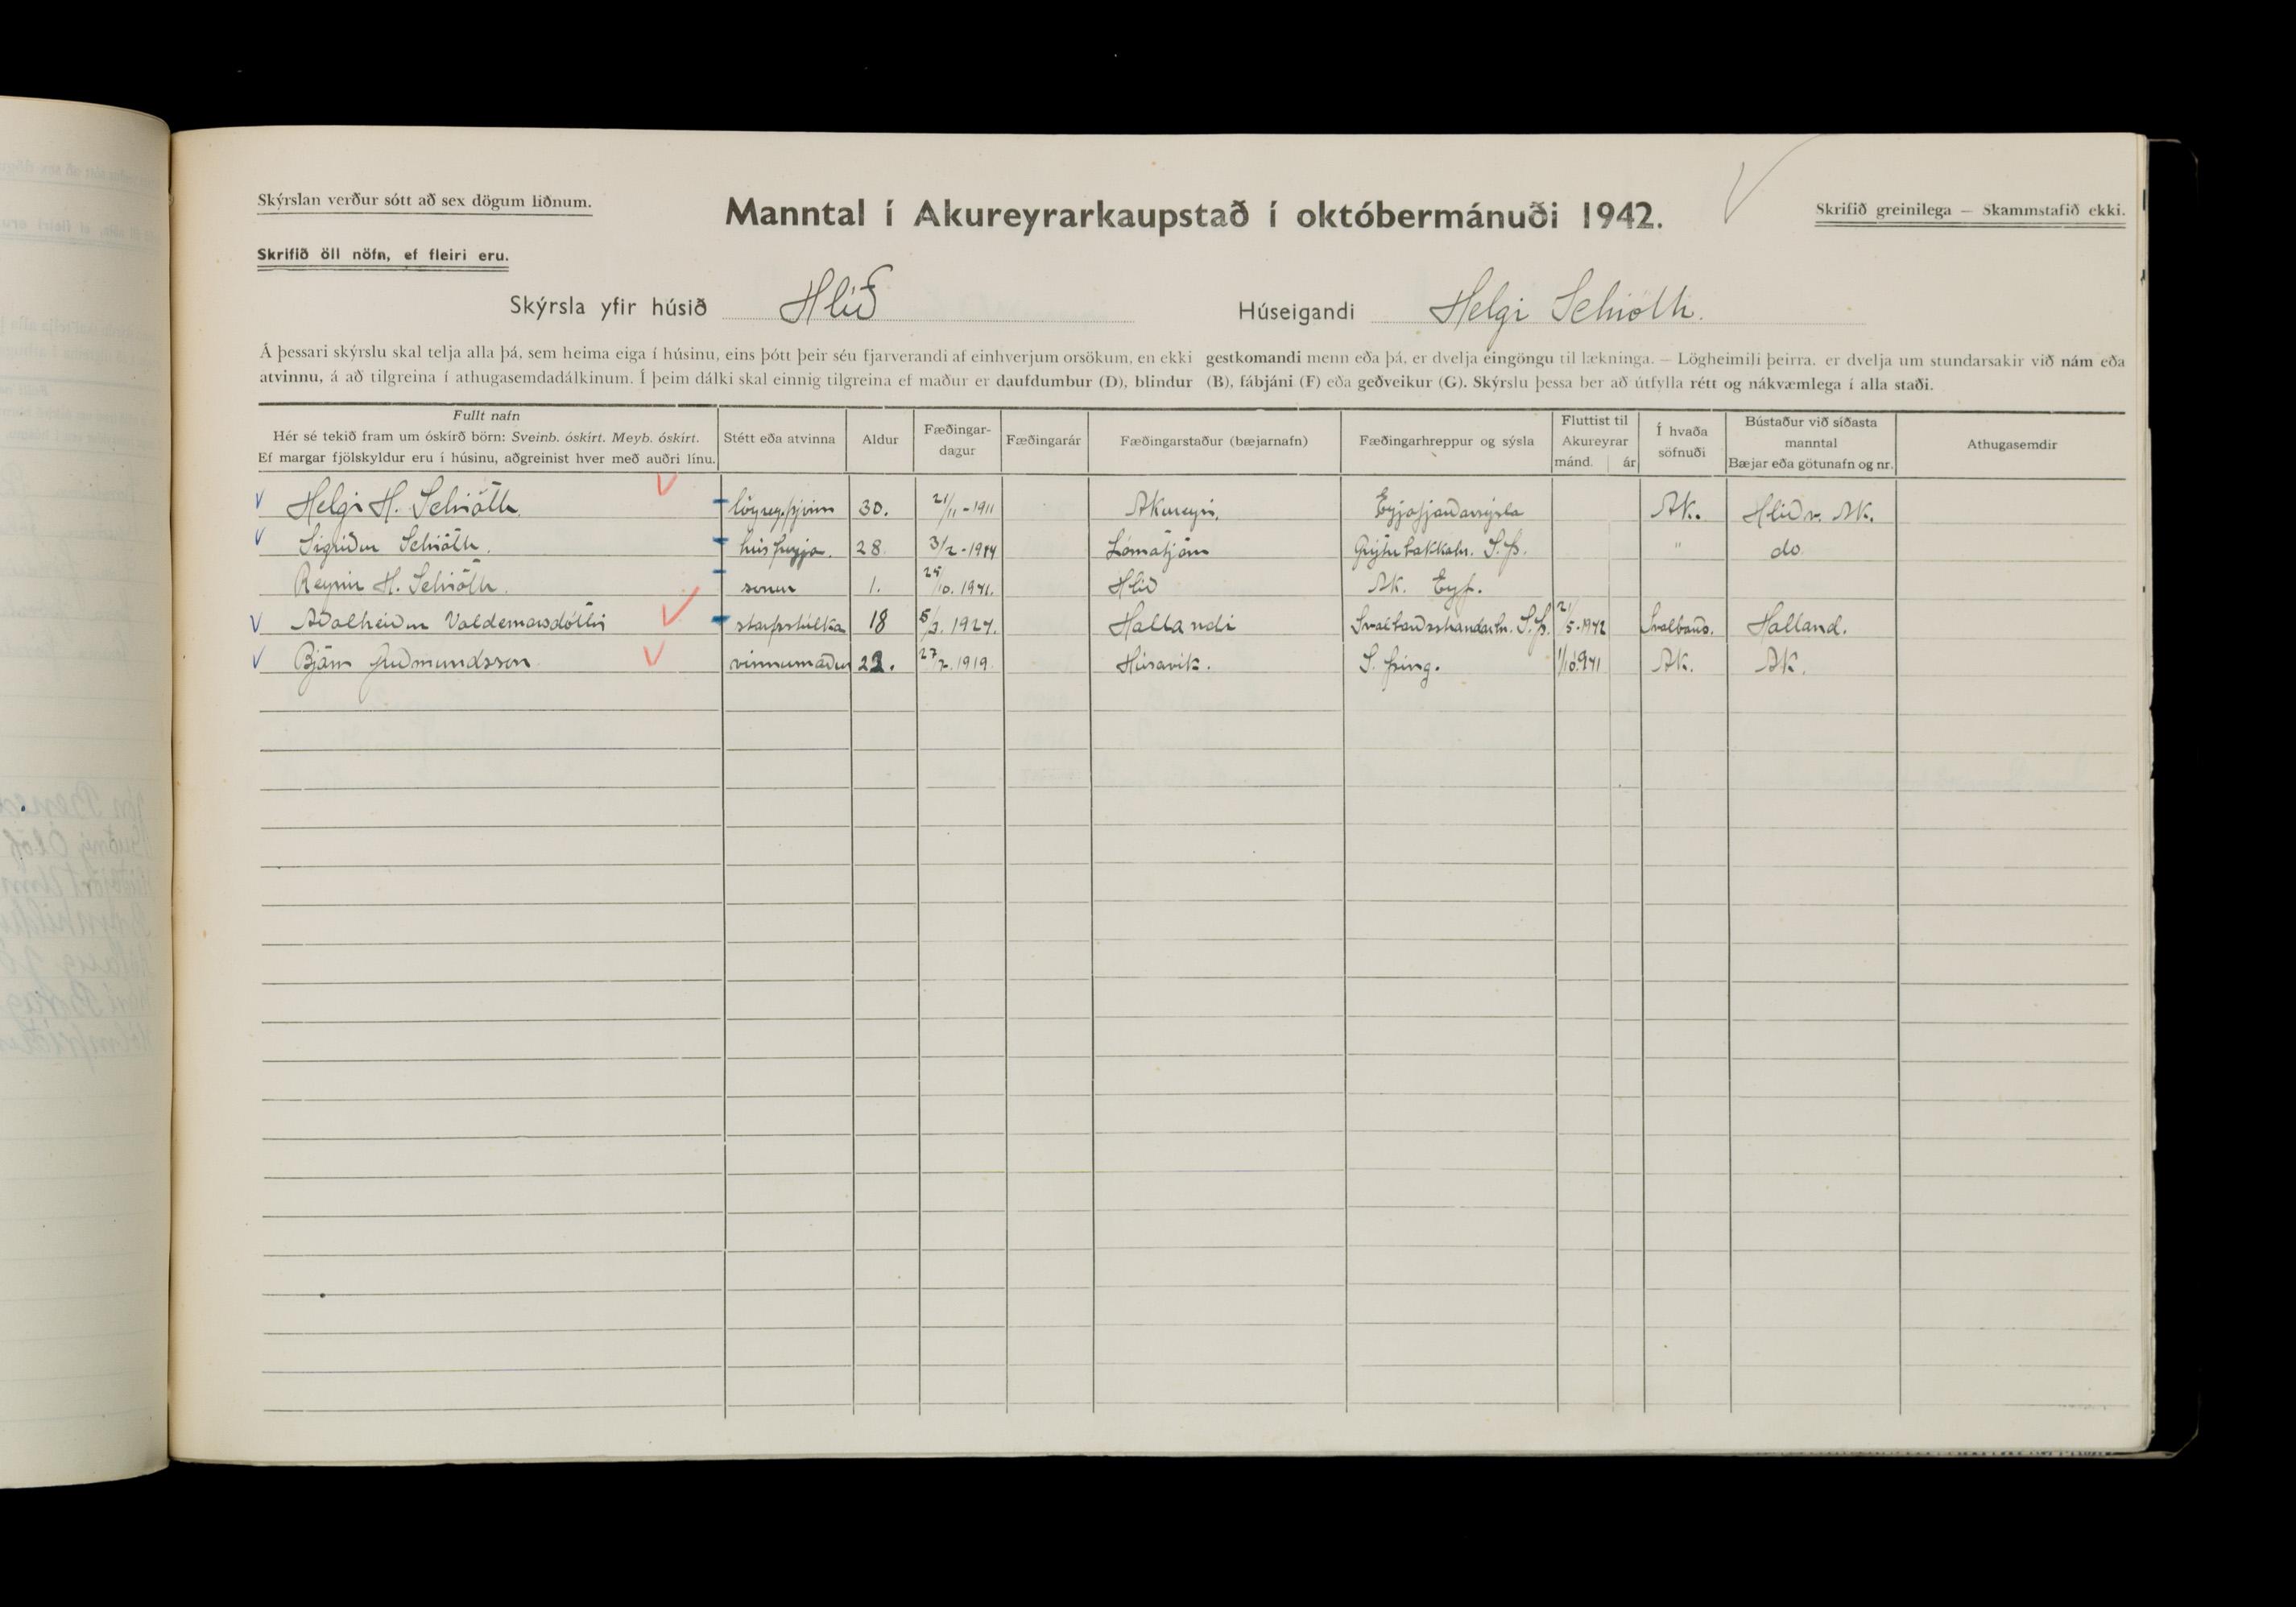 Skýrslan verður sótt að sex dögum liðnum.
Manntal í Akureyrarkaupstað í októbermánuði 1942.
Skrifið greinilega — Skammstafið ekki.
Skrifið öll nöfn, ef fleiri eru.
Skýrsla yfir húsið Hlíð Húseigandi Helgi Schiöth.
Á þessari skýrslu skal telja alla þá, sem heima eiga í húsinu, eins þótt þeir séu fjarverandi af einhverjum orsökum, en ekki gestkomandi menn eða þá, er dvelja eingöngu til lækninga. — Lögheimili þeirra, er dvelja um stundarsakir við nám eða
atvinnu, á að tilgreina í athugasemdadálkinum. Í þeim dálki skal einnig tilgreina ef maður er daufdumbur (D), blindur (B), fábjáni (F) eða geðveikur (G). Skýrslu þessa ber að útfylla rétt og nákvæmlega í alla staði.
Fullt nafn
Hér sé tekið fram um óskírð börn: Sveinb. óskírt. Meyb. óskírt.
Ef margar fjölskyldur eru í húsinu, aðgreinist hver með auðri línu.
Stétt eða atvinna
Aldur
Fæðingar-
dagur
Fæðingarár
Fæðingarstaður (bæjarnafn)
Fæðingarhreppur og sýsla
Fluttist til
Akureyrar
mánd. ár
Í hvaða
söfnuði
Bústaður við síðasta
manntal
Bæjar eða götunafn og nr.
Athugasemdir
Helgi H. Schiöth lögregluþjónn 30. 21/11-1911 Akureyri. Eyjafjarðarsýsla Ak. Hlíð v. Ak.
Sigríður Schiöth. húsfreyja. 28 3/2-1914 Lómatjörn Grýtubakkahr. S.Þ. " do
Reynir H. Schiöth. sonur 1. 25/10.1941. Hlíð Ak. Eyf.
Aðalheiður Valdemarsdóttir starfsstúlka 18 5/3.1924. Hallandi Svalbarðsstrandarhr. S.Þ. 21/5-1942 Svalbarð. Halland.
Björn Guðmundsson vinnumaður 23. 27/7.1919. Húsavík. S. Þing. 1/10.941 Ak. Ak.